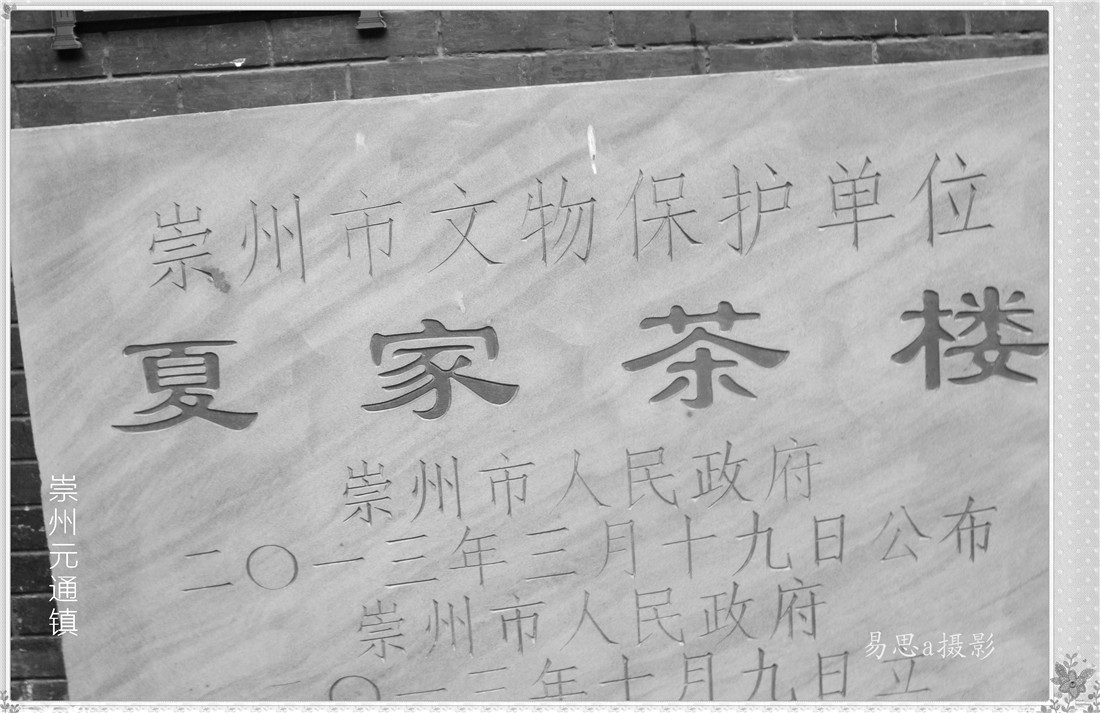 崇州市文物保护单位
夏家茶楼
崇州市人民政府
二〇一三年三月十九日公布
崇州市人民政府
〇一三年十月九日立
崇州元通镇
易思a摄影